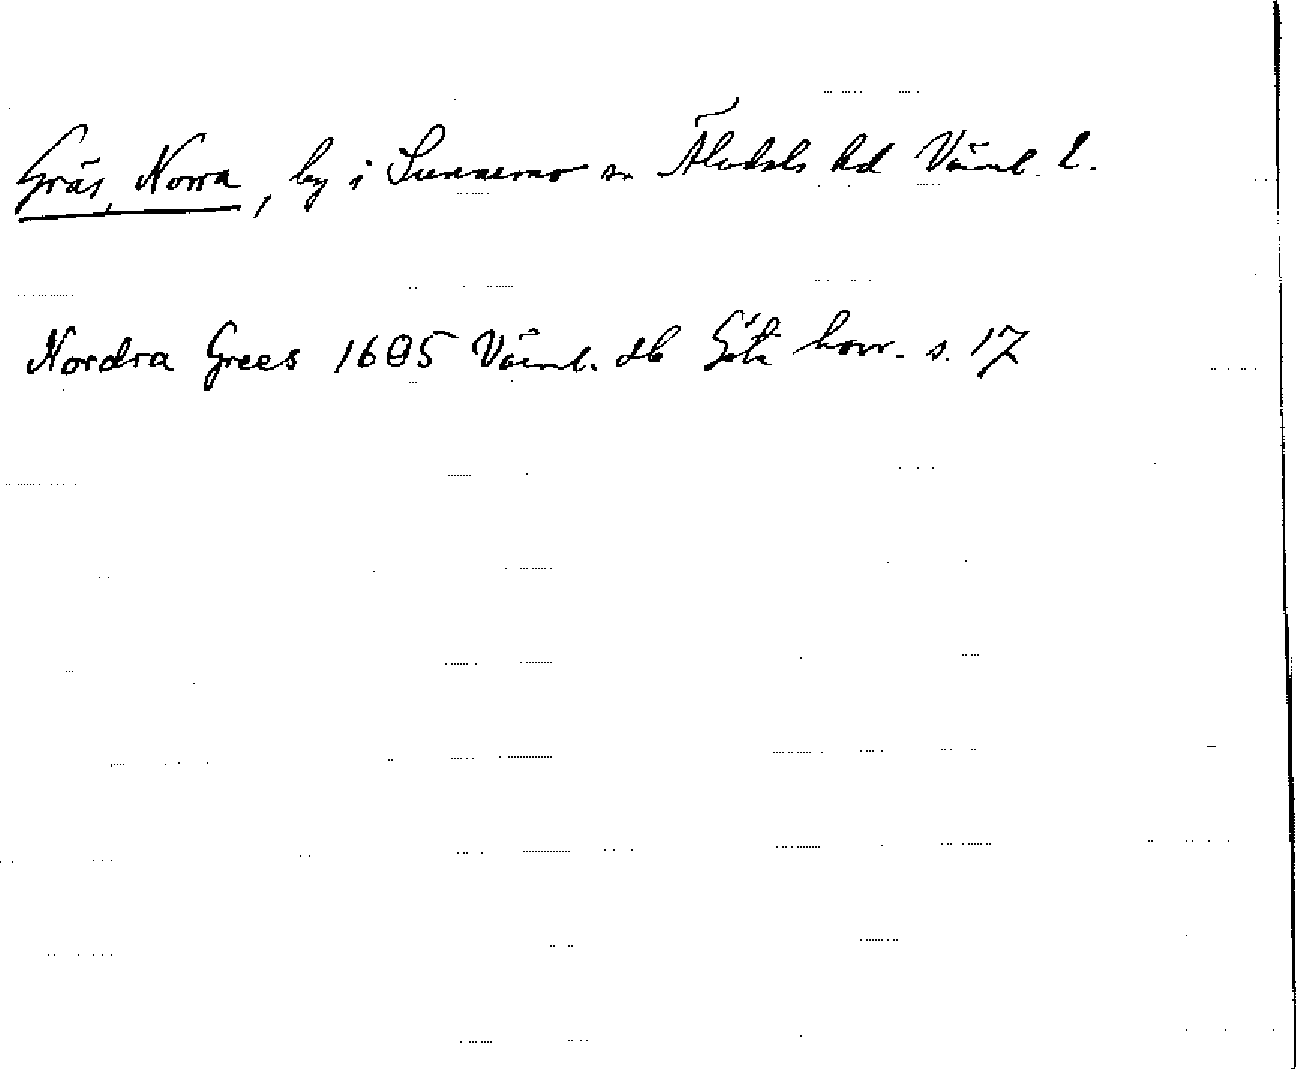 Gräs, Norra, by i Sunnemo sn Älvdals hd Värml. l.
Nordra Grees 1685 Värml. db Göta hovr. s. 17